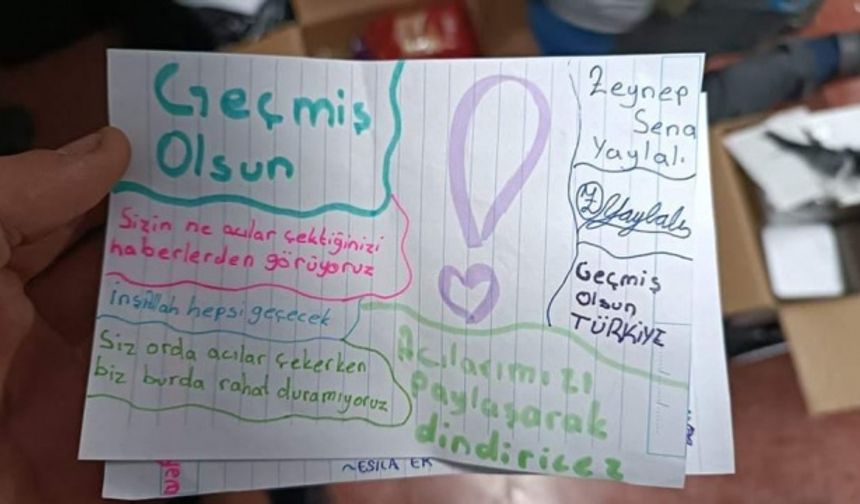 Geçmiş
Olsun
Sizin ne acılar çektiğinizi
haberlerden görüyoruz
inşallah hepsi geçecek
Siz orda acılar çekerken
biz burda rahat duramıyoruz
!
Acılarımızı
paylaşarak
dindiricez
Zeynep
Sena
Yaylalı
ZYaylalı
Geçmiş
Olsun
TÜRKİYE
~ESİLA ER